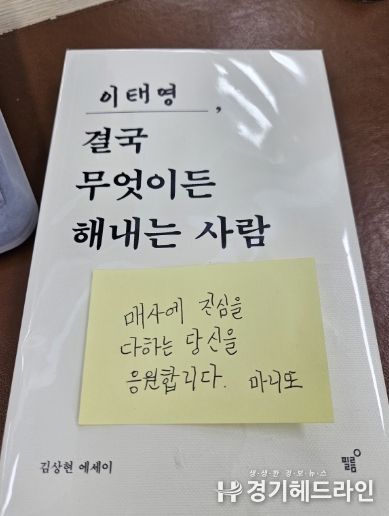 이태영,
결국
무엇이든
해내는 사람
매사에 진심을
다하는 당신을
응원합니다. 마니또
김상현 에세이
필름
생생한 경보뉴스
경기헤드라인